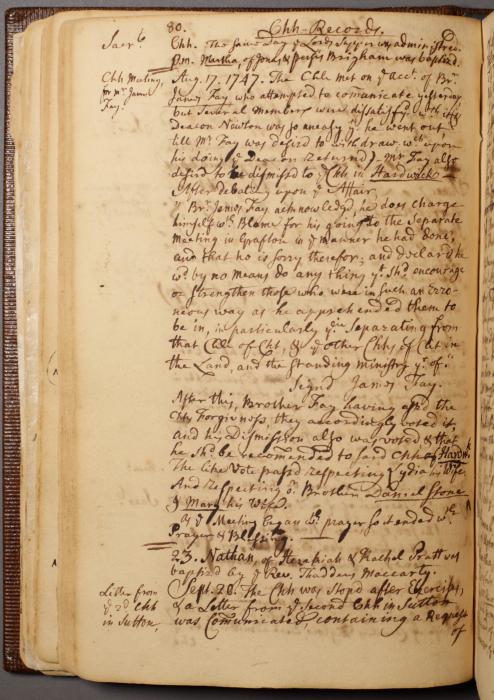 80. Chh-Records.
Sacr.t
Chh. The same Day y.e Lords Supper was administred.
P.m. Martha, of Jonas & Persis Brigham was baptizd.
Chh Meeting,
for m.r James
Fay.
Aug. 17. 1747. The Chh met on y.e acc.t of Br.
James Fay who attempted to comunicate yesterday
but several Members were dissatisfyd with it;
Deacon Newton was so uneasy y.t he went out
till Mr Fay was desird to withdraw: w.ch upon
his doing y.e Deacon Returnd) Mr Fay also
desird to be dismissd to y.e Chh in Hardwick
After debating upon y.e Affair
" Br. James Fay acknowledg'd, he does charge
himself w.th Blame for his going to the Separate
Meeting in Grafton in y.e manner he had done,
and that he is sorry therefor; and declar'd he
w.d by no means do any thing y.t Sh.d encourage
or strengthen those who were in such an Erro-
neous way as he apprehended them to
be in, in particularly y.eir Separating from
that Chh of Cht, & y.e other Chhs of Cht in
the Land, and the Standing ministry y.r of."
Sign'd James Fay.
After this, Brother Fay having ask'd the
Chhs Forgiveness, they accordingly voted it,
and his Dismission also was voted & that
he Sh.d be recomended to said Chh of Hardw.k
The like Vote pass'd respecting Lydia his Wife
And respecting o.r Brother Daniel Stone
& Mary his Wife.
As y.e Meeting began w.th prayer so it ended w.th
Prayer & Blessing
23. Nathan, of Hezekiah & Rachel Pratt was
baptizd by y.e Rev. Thaddeus Maccarty.
Letter from
y.e 2.d Chh
in Sutton,
Sept. 20. The Chh was Stopd after Exercises,
& a Letter from y.e Second Chh in Sutton
was Comunicated, containing a Request
of